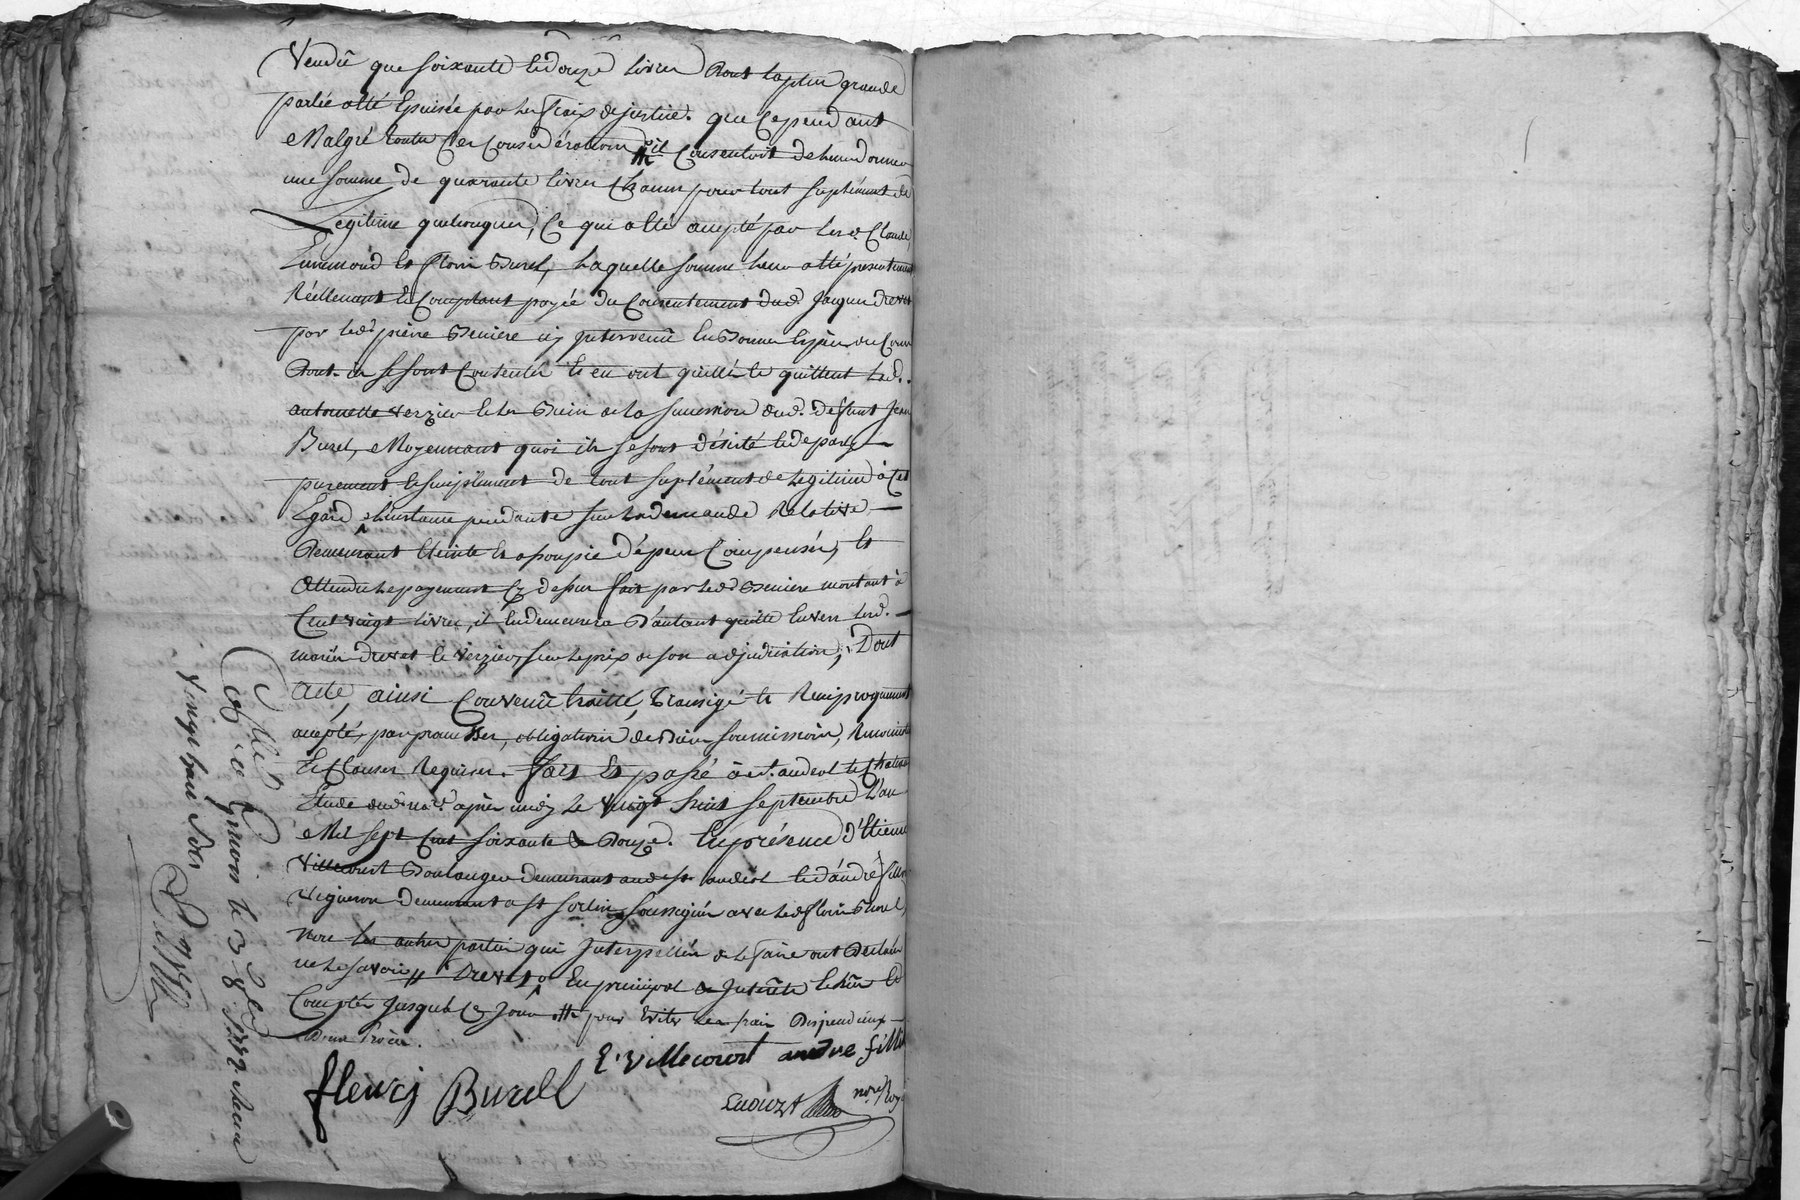 Vendu que soixante et douze livres dont la plus grande
partie a été épuisée par les fraix de justice. que cependant
Malgré toutes ces considérations il consentoit de leur donner
une somme de quarante livres chacun pour tout suplément de
Légitime quelconques, ce qui a été accepté par lesd. Claude,
Ennemond et fleury Burel, laquelle somme leur a été présentement
Réellement et comptant payée du consentement dud. Jaques drevet
par led. pierre Seniere icy intervenu en bonnes espèces du cours
dont ils se sont contentés et en ont quitté et quittent lad.
antoinette verzier et les biens de la succession dud. deffunt Jean
Burel, Moyennant quoi ils se sont désisté et départy
purement et simplement de tout suplément de légitime à cet
Egard, l'instance pendante sur la demande Relative
Demeurant éteinte et assoupie dépens compensés, et
attendu le payement cy dessus fait par led. Seniere montant à
Cent vingt livres, il en demeurera d'autant quitte envers lesd.
mariés drevet et verzier, sur le prix de son adjudication, Dont
acte, ainsi convenu, traitté, transigé et Reciproquement
accepté, par promesses, obligations de biens, soumissions, Renonciations
Et Clauses Requises. fait et passé à st. andeol le chateau
Etude dud. no.re après midy le vingt huit septembre l'an
Mil sept cent soixante & douze. En présence d'Etienne
Villecourt Boulanger demeurant aud. st. andeol et d'andré fillion
vigneron demeurant a st sorlin soussignés avec led. fleury Burel,
non les autres parties qui Interpellées de le faire ont déclaré
ne le savoir // drevet En principal & Interêts et
Comptés Jusqu'à ce Jour // pour Eviter les frais Dispendieux
d'un Procès.
E. villecourt andre fillion
fleury Burell
Enouzt no.re Roy.
Con.lé à Givors le 3 8.bre 1772. Recu
vingt huit sols